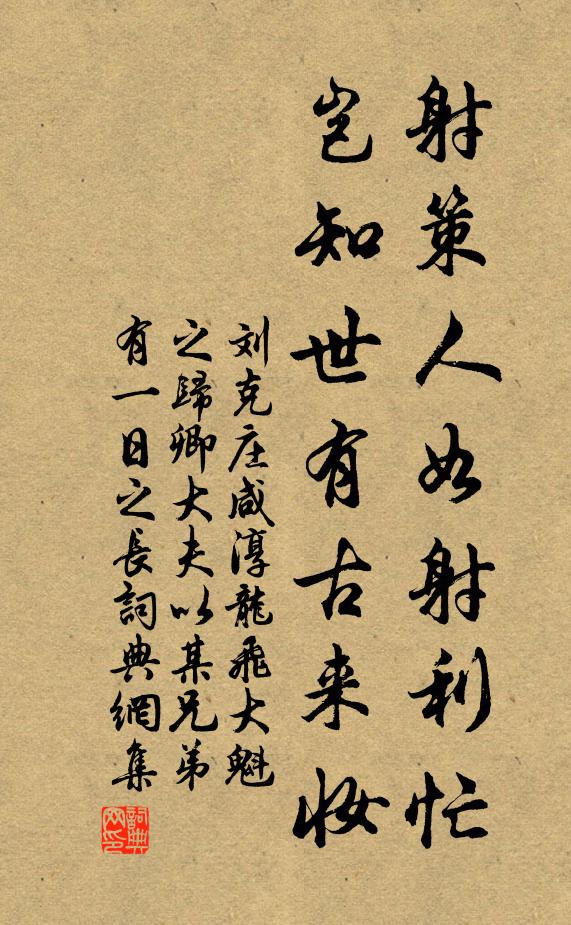 射策人如射利忙
岂知世有古来妆
刘克庄咸淳龍飛大魁
之歸卿大夫以某兄弟
有一日之長詞典網集
詞典网印